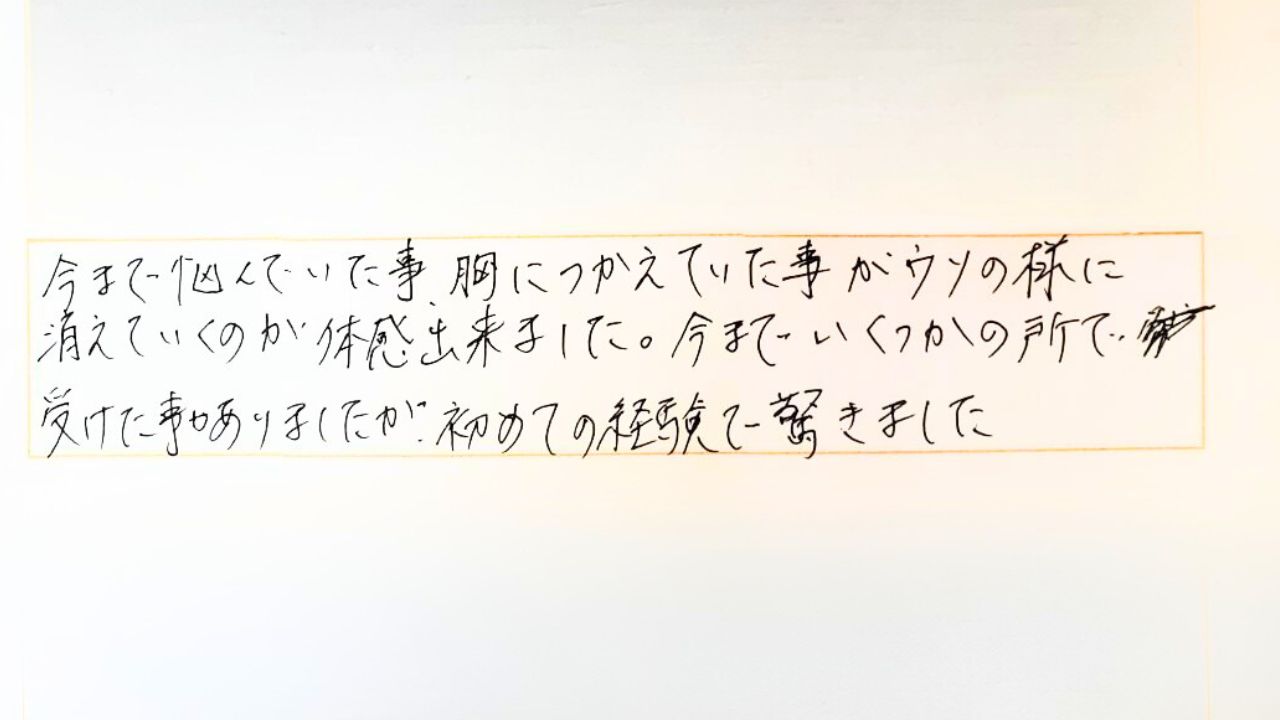 今まで悩んでいた事、胸につかえていた事がウソの様に
消えていくのが体感出来ました。今までいくつかの所で
受けた事がありましたが初めての経験で驚きました